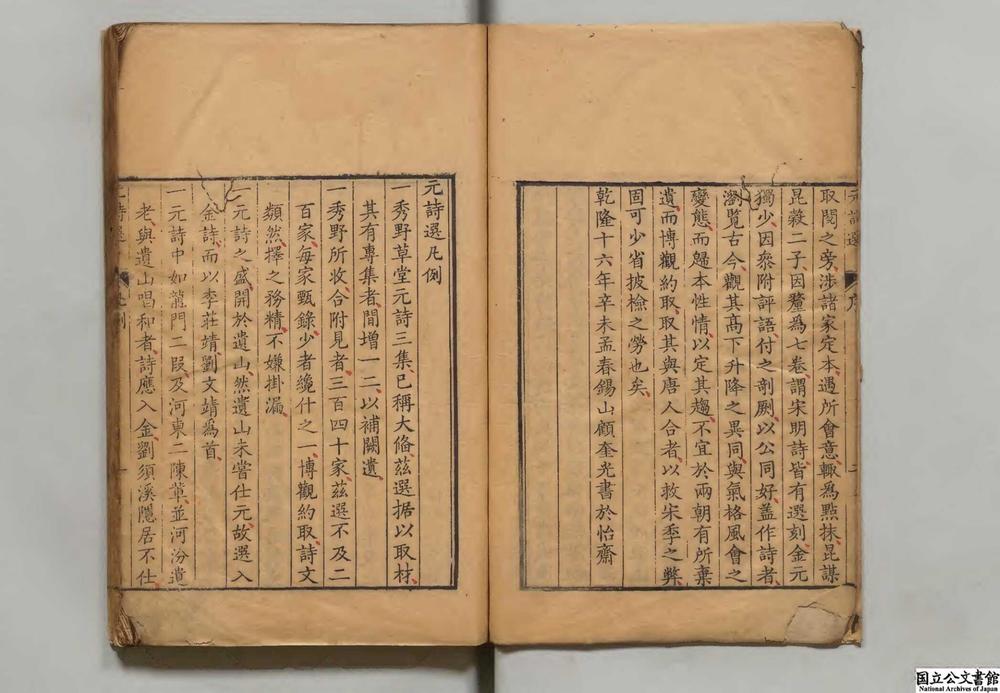 元詩選 序
取閱之旁涉諸家定本遇所會意輒為點抹昆謀
昆敘二子因釐為七卷謂宋明詩皆有選刻金元
獨少因叅附評語付之剞劂以公同好葢作詩者
瀏覽古今觀其高下升降之異同與氣格風會之
變態而歸本性情以定其趨不宜於兩朝有所棄
遺而博觀約取取其與唐人合者以救宋季之弊
固可少省披檢之勞也矣
乾隆十六年辛未孟春錫山顧奎光書於怡齋
元詩選凡例
一秀野草堂元詩三集已稱大俻茲選据以取材
其有專集者間增一二以補闕遺
一秀野所收合附見者三百四十家茲選不及二
百家每家甄錄少者纔什之一博觀約取詩文
類然擇之務精不嫌掛漏
一元詩之盛開於遺山然遺山未嘗仕元故選入
金詩而以李莊靖劉文靖為首
一元詩中如龍門二段及河東二陳軰並河汾遺
老與遺山唱和者詩應入金劉須溪隱居不仕
元詩選 凡例 一
國立公文書館
National Archives of Japan